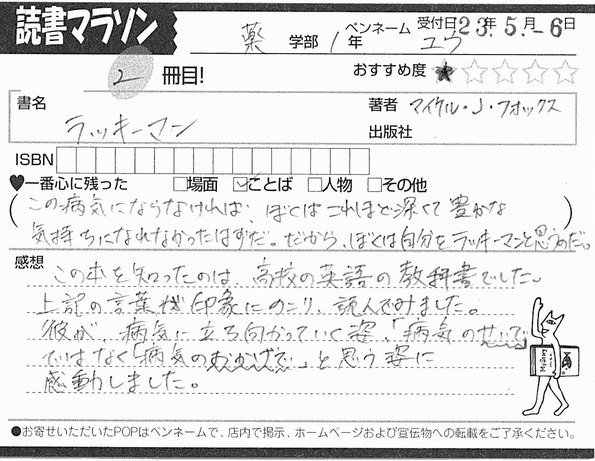 読書マラソン
薬 学部 1年 ペンネーム ユウ 受付日 23年5月-6日
2 冊目! おすすめ度 ★☆☆☆☆
書名 ラッキーマン
著者 マイケル・J・フォックス
出版社
ISBN
♥一番心に残った □場面 ☑ことば □人物 □その他
(この病気にならなければ、ぼくはこれほど深くて豊かな
気持ちになれなかったはずだ。だから、ぼくは自分をラッキーマンと思うのだ。)
感想
この本を知ったのは、高校の英語の教科書でした。
上記の言葉が印象にのこり、読んでみました。
彼が、病気に立ち向かっていく姿、「病気のせいで」
ではなく「病気のおかげで」と思う姿に
感動しました。
●お寄せいただいたPOPはペンネームで、店内で掲示、ホームページおよび宣伝物への転載をご了承ください。